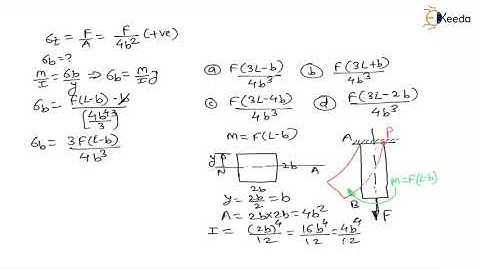 Ekeeda
σt = F/A = F/4b² (+ve)
σb = ?
m/I = σb/y ⇒ σb = m/I y
σb = F(L-b) · b / [4b⁴/3]
σb = 3F(L-b) / 4b³
ⓐ F(3L-b)/4b³ ⓑ F(3L+b)/4b³
ⓒ F(3L-4b)/4b³ ⓓ F(3L-2b)/4b³
m = F(L-b)
y N 2b A
2b
y = 2b/2 = b
A = 2b×2b = 4b²
I = (2b)⁴/12 = 16b⁴/12 = 4b⁴/12
A P
m=F(L-b)
B
F